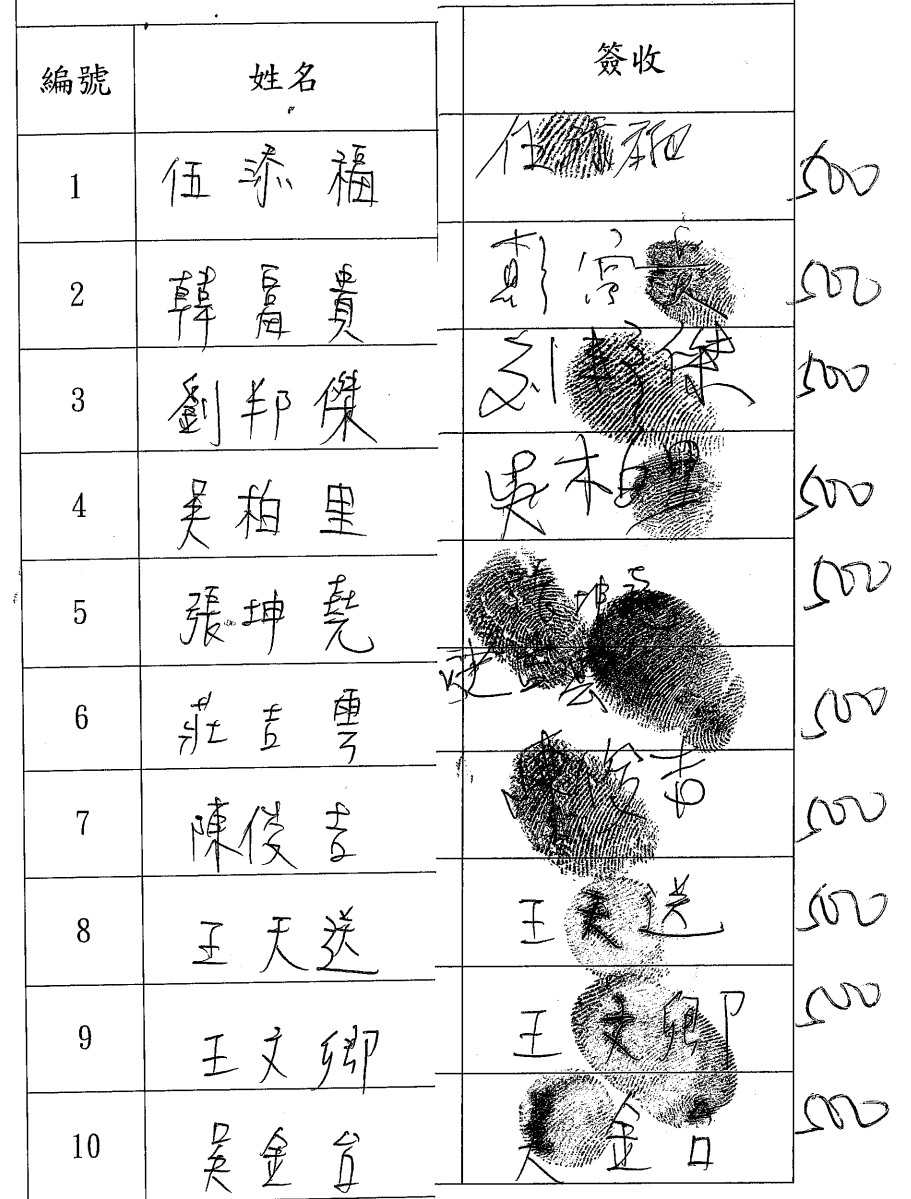 編號 姓名 簽收
1 伍添福 500
2 韓富貴 500
3 劉邦傑 刘邦傑 500
4 吳柏里 吳柏里 500
5 張坤堯 坤 500
6 莊吉雲 500
7 陳俊吉 俊吉 500
8 王天送 王天送 500
9 王文卿 王文卿 500
10 吳金台 金台 500